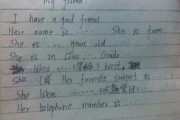 My friend
I have a good friend
Her name is ..... She is from
She is ..... years old
She is in Class ... Grade ...
likes ..... best
She is Her favorite subject is .....
She likes .....
Her telephone number is .....